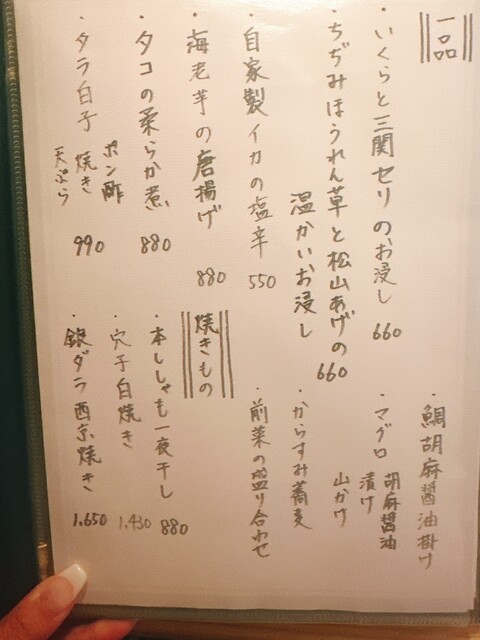 一品
・いくらと三関セリのお浸し 660
・ちぢみほうれん草と松山あげの
温かいお浸し 660
・自家製イカの塩辛 550
・海老芋の唐揚げ 880
・タコの柔らか煮 880
・タラ白子 ポン酢
焼き
天ぷら 990
・鯛胡麻醤油掛け
・マグロ 胡麻醤油
漬け
山かけ
・からすみ蕎麦
・前菜の盛り合わせ
焼きもの
・本ししゃも一夜干し 880
・穴子白焼き 1,430
・銀ダラ西京焼き 1,650